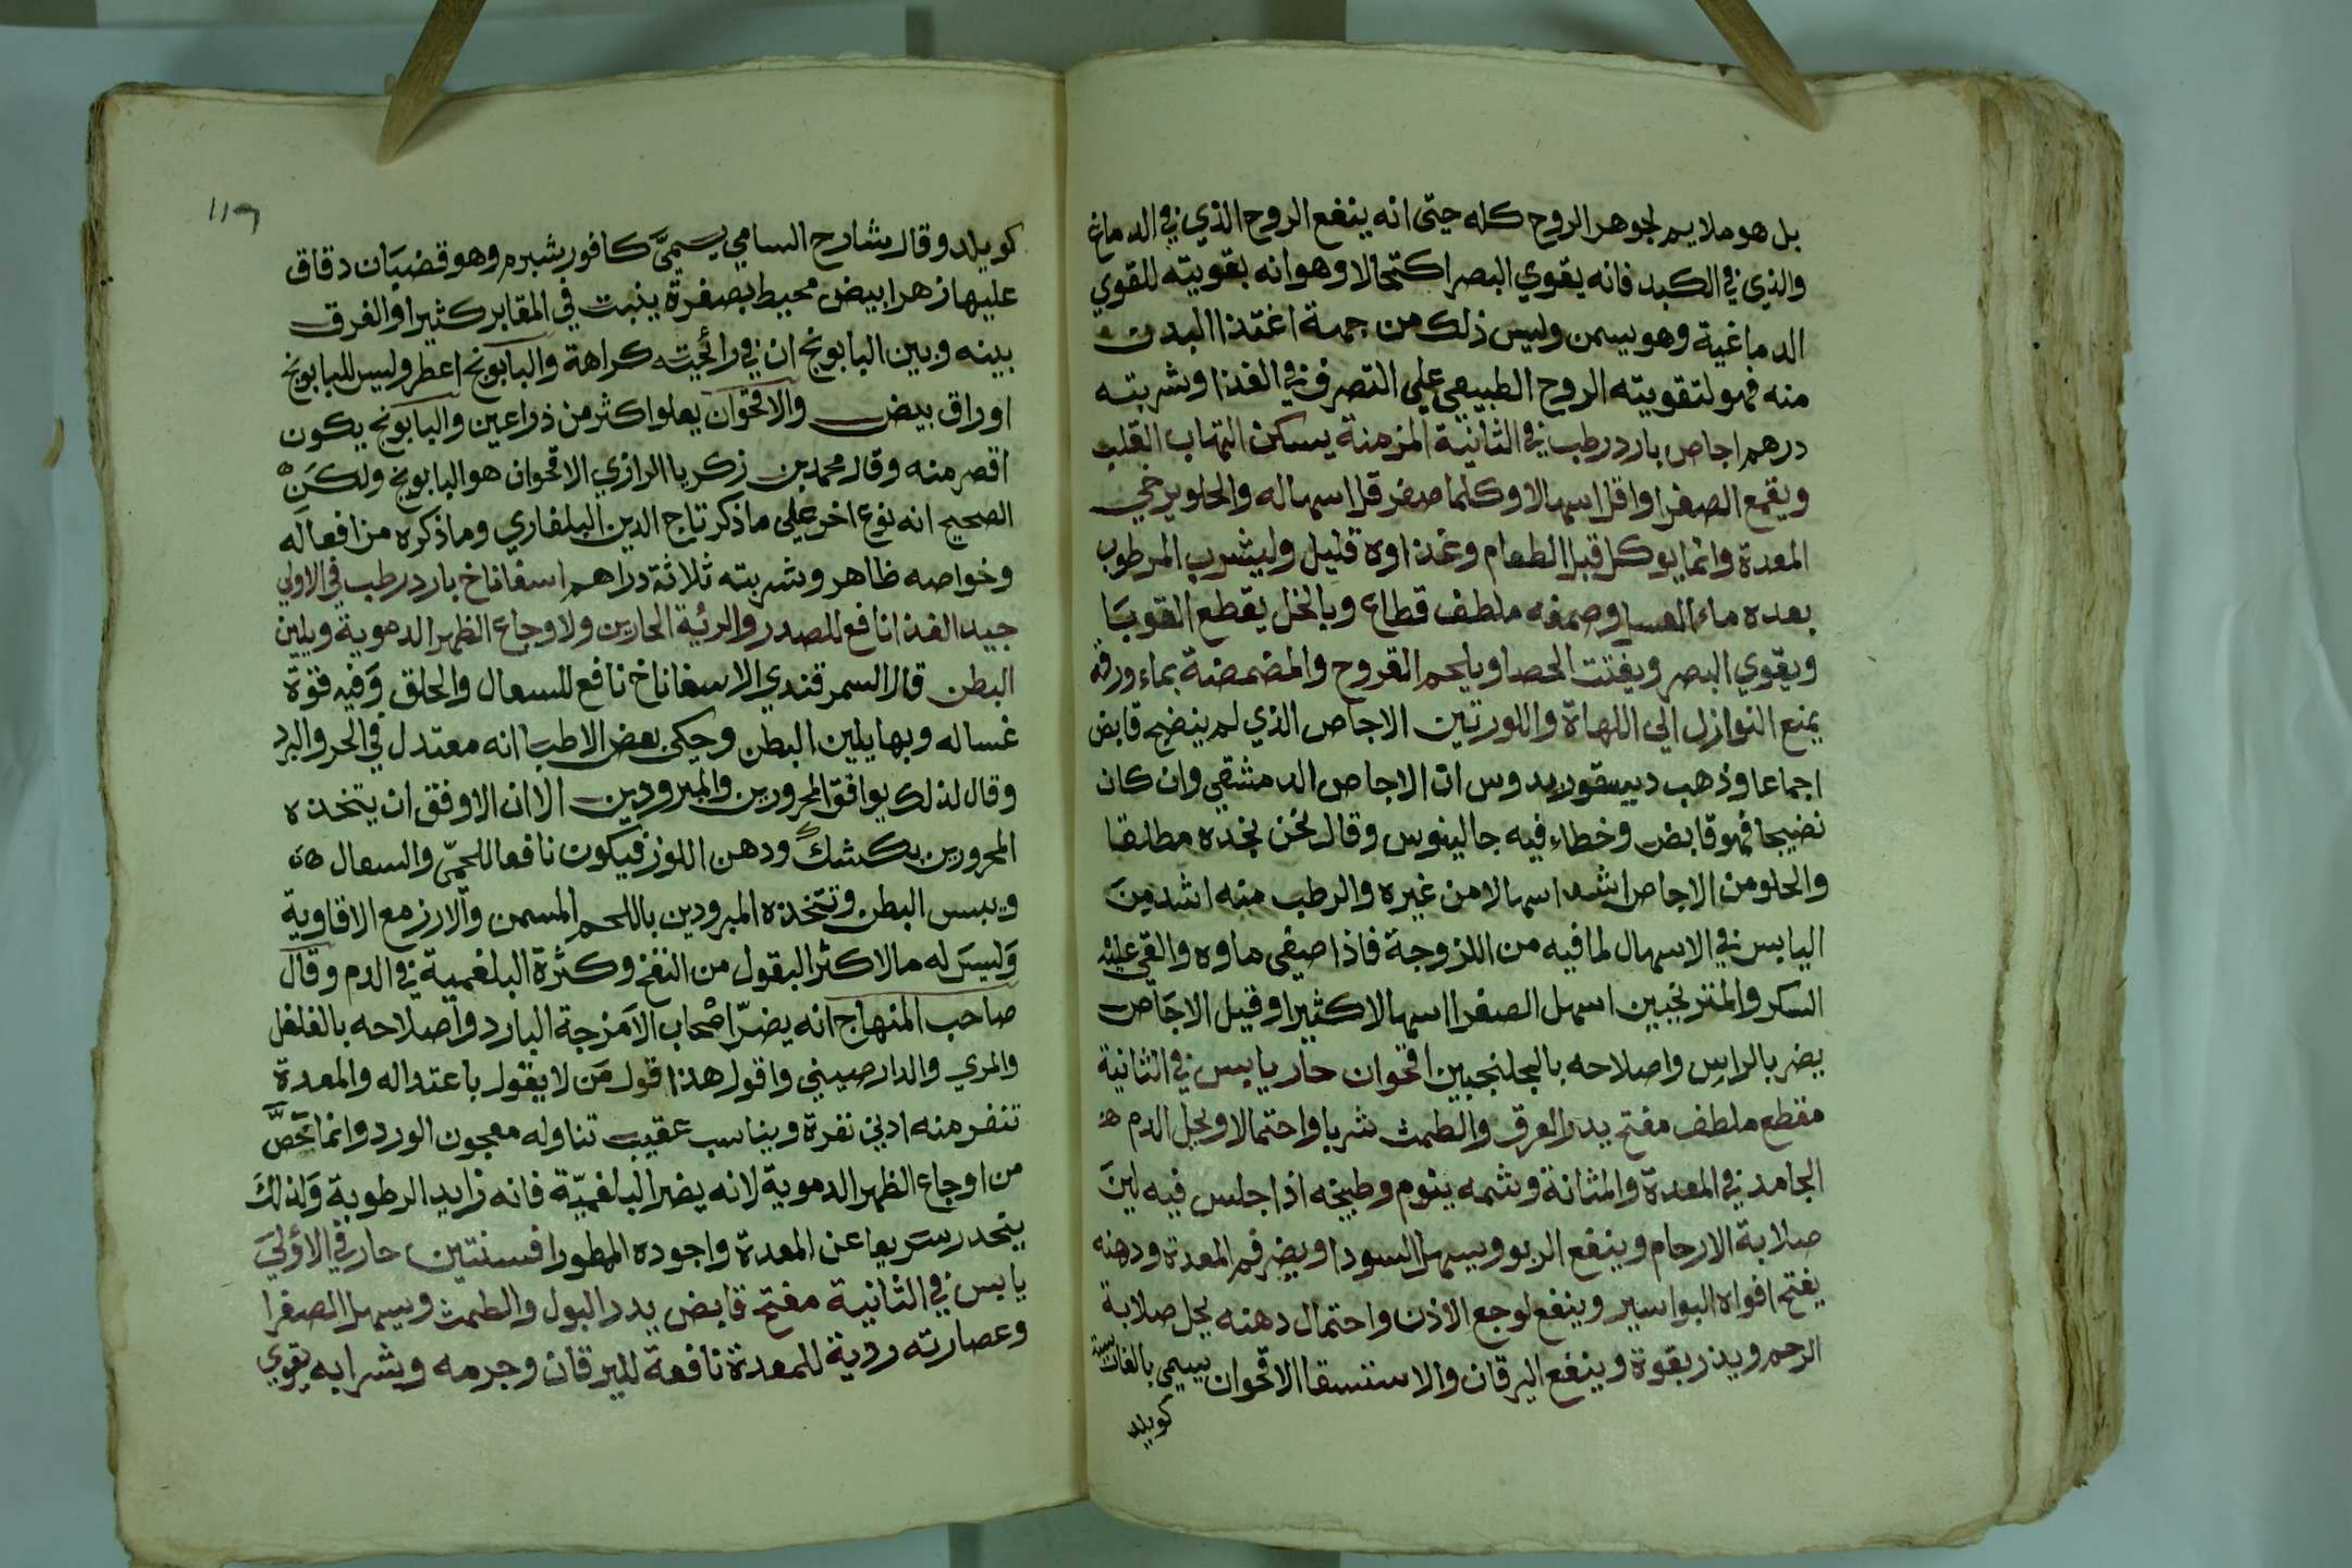 بل هو ملايم لجوهر الروح كله حتى انه ينفع الروح الذي في الدماغ
والذي في الكبد فانه يقوي البصر اكتحالا وهو انه بقويته للقوي
الدماغية وهو يسمن وليس ذلك من جهة اغتذا البدن
منه فهو لتقويته الروح الطبيعي علي التصرف في الغذا وشربته
درهم اجاص بارد رطب في الثانية المزمنة يسكن التهاب القلب
ويقمع الصفرا واقل اسهالا وكلما صغر قل اسهاله والحلو يرخي
المعدة وانما يوكل قبل الطعام وغذاوه قليل وليشرب المرطوب
بعده ماء العسل وصمغه ملطف قطاع وبالخل يقطع القوبا
ويقوي البصر ويفتت الحصا ويلحم القروح والمضمضة بماء ورقه
يمنع النوازل الي اللهاة واللوزتين الاجاص الذي لم ينضج قابض
اجماعا وذهب ديسقوريدوس ان الاجاص الدمشقي وان كان
نضيجا فهو قابض وخطاء فيه جالينوس وقال نحن نجده مطلقا
والحلو من الاجاص اشد اسهالا من غيره والرطب منه اشد من
اليابس في الاسهال لما فيه من اللزوجة فاذا صفى ماوه والقي عليه
السكر والمنترنجبين اسهل الصفرا اسهالا كثيرا وقيل الاجاص
يضر بالراس واصلاحه بالجلنجبين اقحوان حار يابس في الثانية
مقطع ملطف مفتح يدر العرق والطمث شربا واحتمالا ويحل الدم
الجامد في المعدة والمثانة وشمه ينوم وطبيخه اذا جلس فيه لين
صلابة الارحام وينفع الربو ويسهل السودا ويضر فم المعدة ودهنه
يفتح افواه البواسير وينفع لوجع الاذن واحتمال دهنه يحل صلابة
الرحم ويدر بقوة وينفع اليرقان والاستسقا الاقحوان يسمي بالفارسية
كويلد
١١٦
كويلد وقال شارح السامي يسمى كافور شبرم وهو قضبان دقاق
عليها زهر ابيض محيط بصفرة ينبت في المقابر كثيرا والفرق
بينه وبين البابونج ان في رائحته كراهة والبابونج اعطر وليس للبابونج
اوراق بيض والاقحوان يعلوا اكثر من ذراعين والبابونج يكون
اقصر منه وقال محمد بن زكريا الرازي الاقحوان هو البابونج ولكن
الصحيح انه نوع اخر علي ماذكر تاج الدين البلغاري وما ذكره من افعاله
وخواصه ظاهر وشربته ثلاثة دراهم اسفاناخ بارد رطب في الاولي
جيد الغذا نافع للصدر والرئة الحارين ولاوجاع الظهر الدموية ويلين
البطن قال السمرقندي الاسفاناخ نافع للسعال والحلق وفيه قوة
غساله وبها يلين البطن وحكي بعض الاطبا انه معتدل في الحر والبرد
وقال لذلك يوافق المحرورين والمبرودين الا ان الاوفق ان يتخذه
المحرورين بكشك ودهن اللوز فيكون نافعا للحمى والسعال
ويبس البطن وتتخذه المبرودين باللحم المسمن والارز مع الافاوية
وليس له ما لاكثر البقول من النفخ وكثرة البلغمية في الدم وقال
صاحب المنهاج انه يضر اصحاب الامزجة البارد واصلاحه بالفلفل
والمري والدارصيني واقول هذا قول من لا يقول باعتداله والمعدة
تنفر منه ادني نفرة ويناسب عقيب تناوله معجون الورد وانما خص
من اوجاع الظهر الدموية لانه يضر البلغمية فانه زايد الرطوبة ولذلك
ينحدر سريعا عن المعدة واجوده الممطور افسنتين حار في الاولى
يابس في الثانية مفتح قابض يدر البول والطمث ويسهل الصفرا
وعصارته ردية للمعدة نافعة لليرقان وجرمه وشرابه يقوي